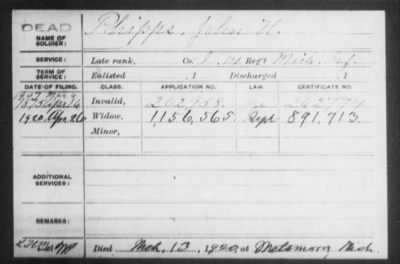 DEAD
NAME OF SOLDIER: Phipps, John H.
SERVICE: Late rank, Co. I, Reg't Mich. Inf.
TERM OF SERVICE: Enlisted , 1 Discharged , 1
DATE OF FILING. CLASS. APPLICATION NO. LAW. CERTIFICATE NO.
Invalid, 202,958.
1920, Apr. 26 Widow, 1,156,565 Sept 891,713.
Minor,
ADDITIONAL SERVICES:
REMARKS:
Died Mch. 13, 1920, at Metamora, Mich.